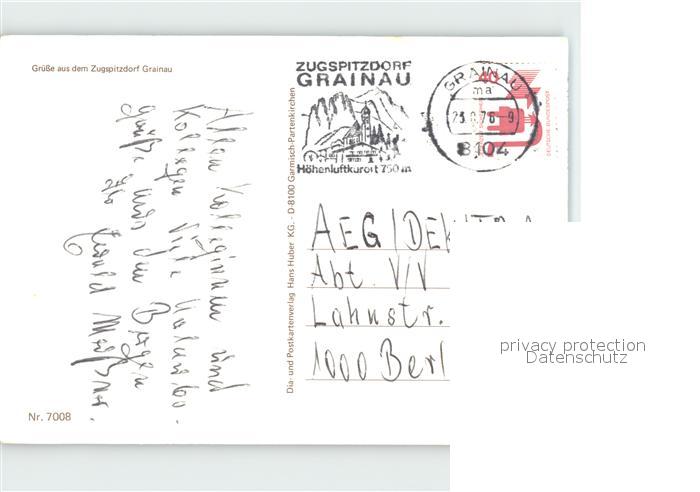 Grüße aus dem Zugspitzdorf Grainau
ZUGSPITZDORF
GRAINAU
Höhenluftkurort 750 m
GRAINAU
ma
23.8.76-9
8104
40
DEUTSCHE BUNDESPOST
Allen Kolleginnen und
Kollegen viele Urlaubs-
grüße aus den Bergen
Dia- und Postkartenverlag Hans Huber KG. - D-8100 Garmisch-Partenkirchen
AEG/
Abt. V/V
Lahnstr.
1000 Berl
privacy protection
Datenschutz
Nr. 7008